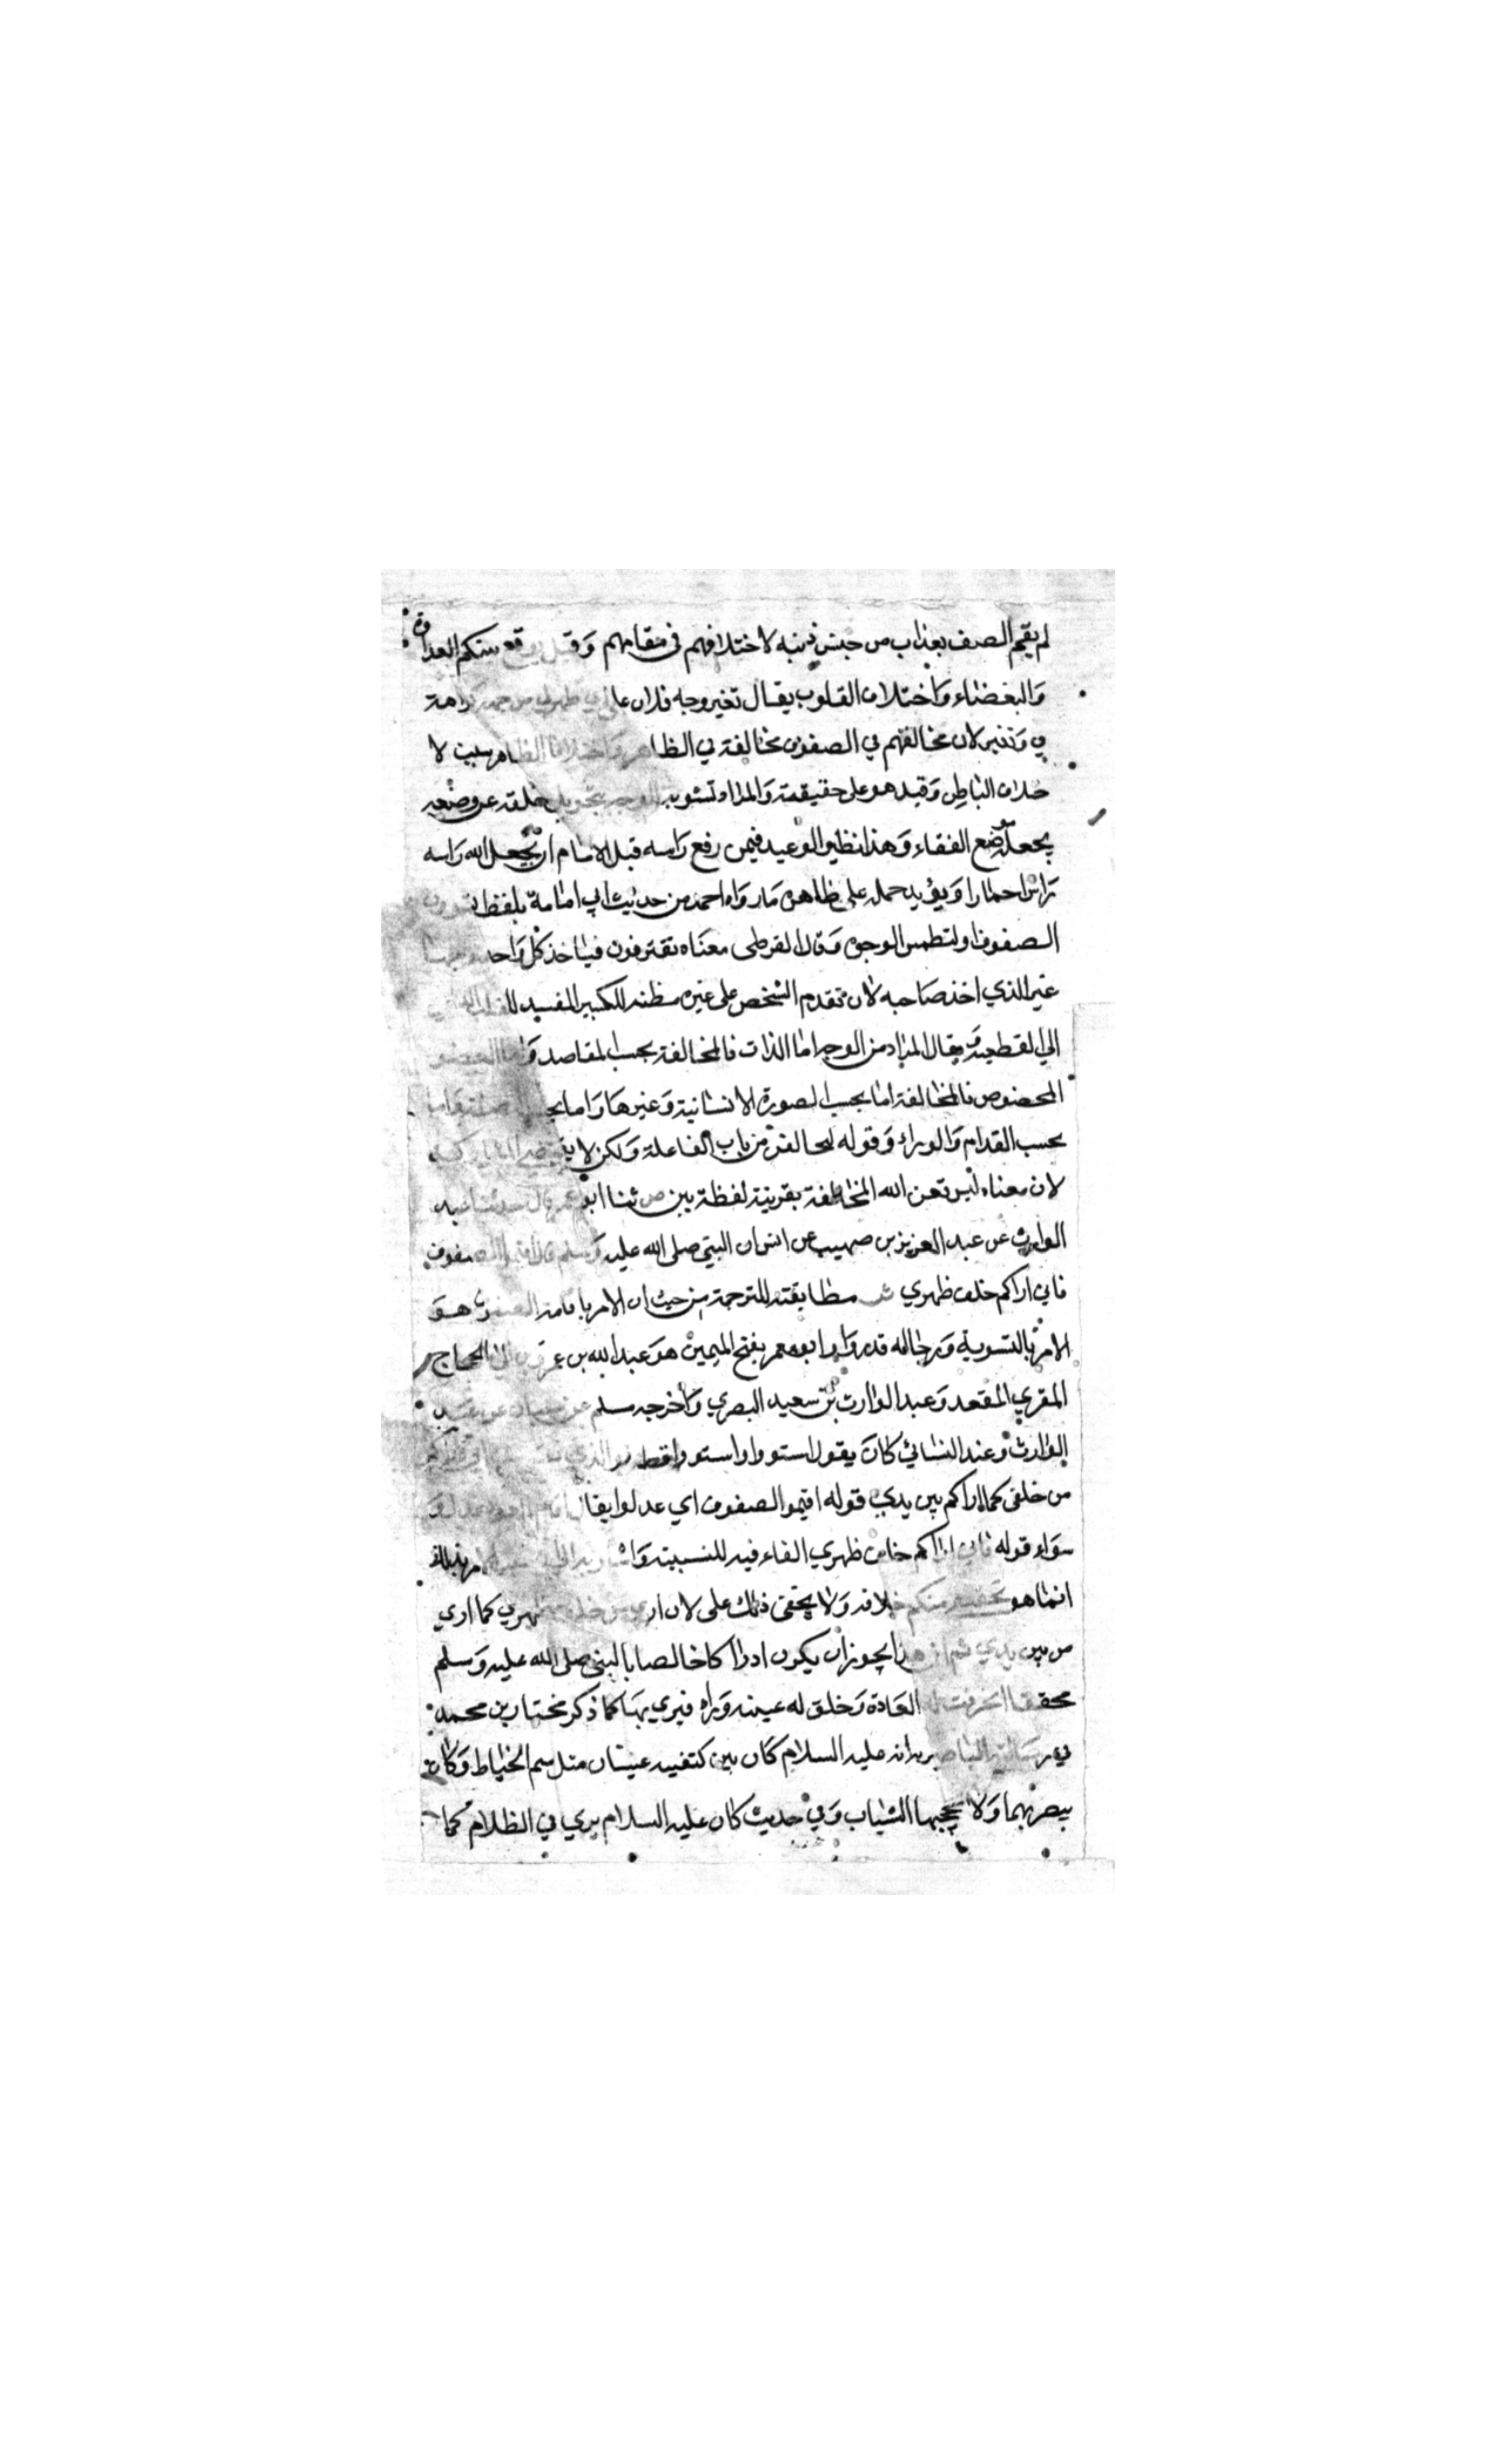 لم يقم الصف بعذاب من جنس ذنبه لاختلافهم في مقامهم وقيل يوقع بينكم العداوة
والبغضاء واختلاف القلوب يقال تغير وجه فلان علي
في وتغير لان مخالفتهم في الصفوف مخالفة في الظاهر واختلاف الظاهر سبب لا
ختلاف الباطن وقيل هو على حقيقته والمراد تشويه الوجه بتحويل خلقه عن وضعه
بجعله موضع القفاء وهذا نظير الوعيد فيمن رفع راسه قبل الامام ان يجعل الله راسه
راس حمارا ويؤيد حمله على ظاهره ما رواه احمد من حديث ابي امامة بلفظ
الصفوف او لتطمس الوجوه وقال القرطبي معناه تفترقون فياخذ كل واحد وجها
غير الذي اخذ صاحبه لان تقدم الشخص على غيره مظنه للكبير المفسد للقلب
الي القطيعة ويقال المراد من الوجه اما الذات فالمخالفة بحسب المقاصد واما العضو
المخصوص فالمخالفة اما بحسب الصورة الانسانية وغيرها واما
بحسب القدام والوراء وقوله ليخالفن من باب المفاعلة ولكن لا يقتضي المشاركة
لان معناه ليوقعن الله المخالفة بقرينة لفظة بين ص ثنا ابو معمر قال حدثنا عبد
الوارث عن عبد العزيز بن صهيب عن انس ان النبي صلى الله عليه وسلم قال اقيموا الصفوف
فاني اراكم خلف ظهري ش مطابقته للترجمة من حيث ان الامر باقامة الصفوف هو
الامر بالتسوية ورجاله قد مروا وابو معمر بفتح الميمين هو عبد الله بن عمرو بن ابي الحجاج
المقري المقعد وعبد الوارث بن سعيد البصري واخرجه مسلم عن شيبان عن عبد
الوارث وعند النسائي كان يقول استووا استووا استووا فوالذي
من خلفي كما اراكم بين يدي قوله اقيموا الصفوف اي عدلوا يقال
سواه قوله فاني اراكم خلف ظهري الفاء فيه للسببية واشار به الى
انما هو تحقيق منكم خلافه ولا يخفى ذلك على لان اري من خلف ظهري كما اري
من بين يدي ثم ان هذا يجوز ان يكون ادراكا خالصا بالنبي صلى الله عليه وسلم
محققا انخرقت له العادة وخلق له عينه وراه فيري بها كما ذكر مختار بن محمد
في رسالته الناصرية انه عليه السلام كان بين كتفيه عينان مثل سم الخياط وكان
يبصر بهما ولا يحجبها الثياب وفي حديث كان عليه السلام يري في الظلام كما